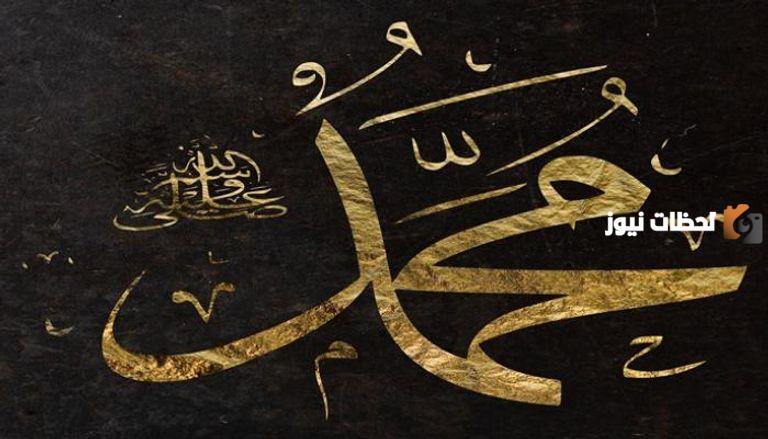 مُحَمَّدٌ
صلى الله عليه وسلم
لحظات نيوز